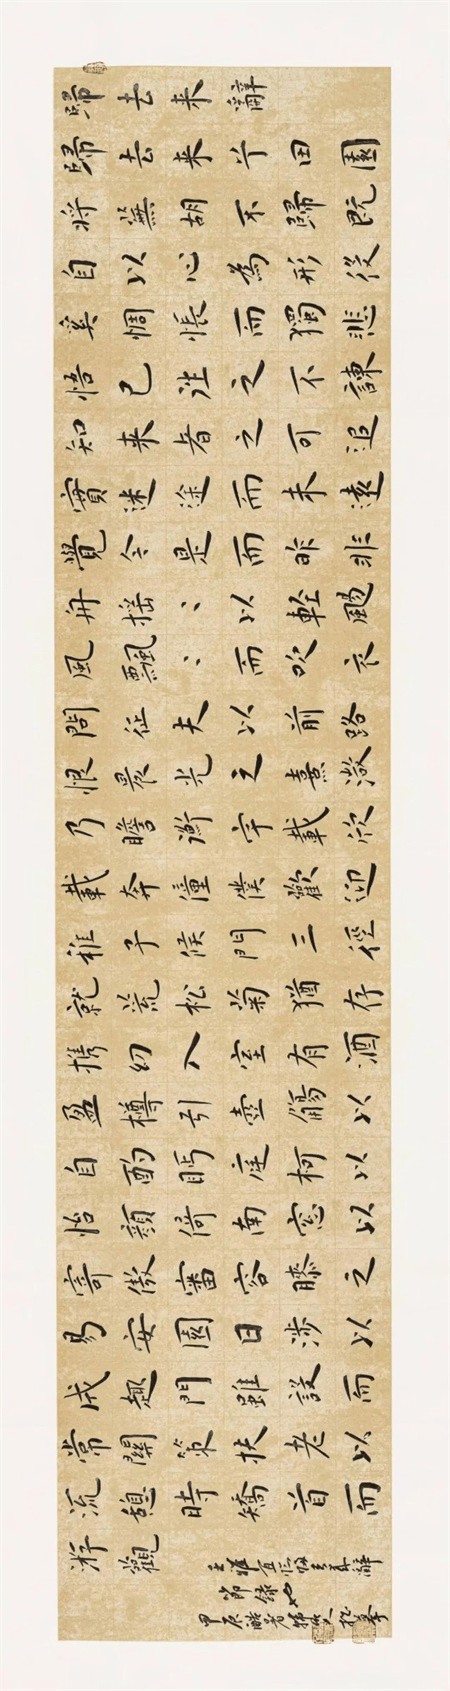 歸去来辭
歸去来兮田園
将蕪胡不歸既
自以心為形役
奚惆悵而獨悲
悟已往之不諫
知来者之可追
實迷途而未遠
覺今是而昨非
舟摇〻以輕颺
風飄〻而吹衣
問征夫以前路
恨晨光之熹微
乃瞻衡宇載欣
載奔僮僕歡迎
稚子候門三徑
就荒松菊猶存
携幼入室有酒
盈樽引壺觴以
自酌眄庭柯以
怡顏倚南窓以
寄傲審容膝之
易安園日涉以
成趣門雖設而
常關策扶老以
流憩時矯首而
游觀
節錄
甲辰